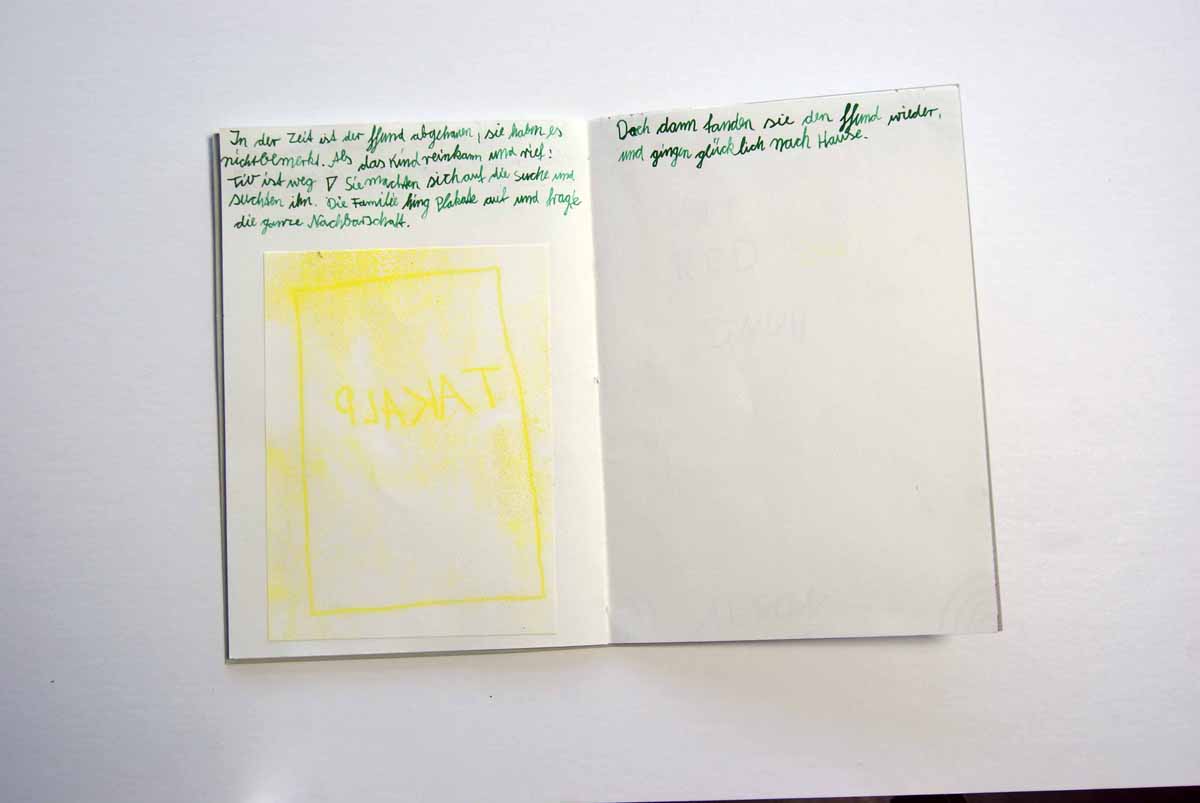 In der Zeit ist der ffund abgehauen, sie haben es
nicht bemerkt. Als das Kind reinkam und rief:
ist weg Sie machten sich auf die Suche und
suchten ihn. Die Familie hing Plakate auf und fragte
die ganze Nachbarschaft.
TAKALP
Doch dann fanden sie den ffund wieder,
und gingen glücklich nach Hause.